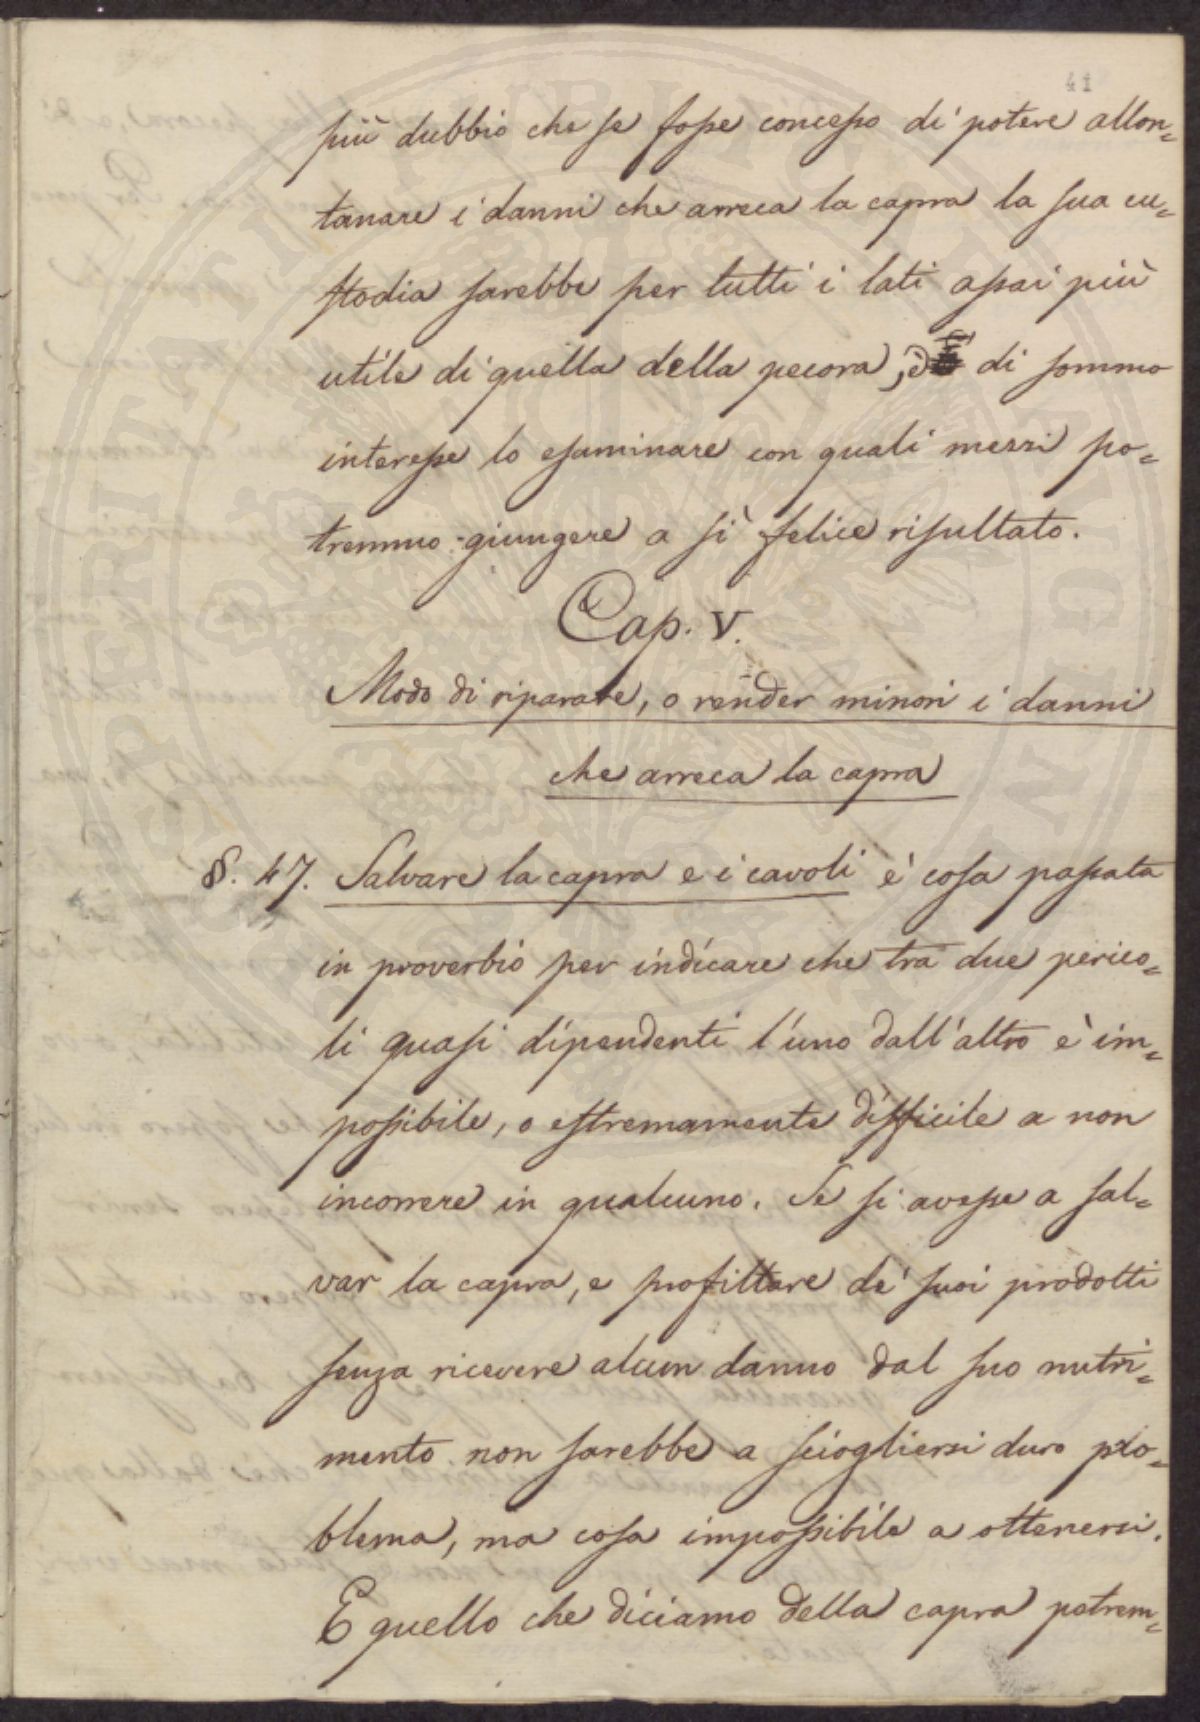 41
più dubbio che se fosse concesso di potere allon=
tanare i danni che arreca la capra la sua cu=
stodia sarebbe per tutti i lati assai più
utile di quella della pecora, è di sommo
interesse lo esaminare con quali mezzi po=
tremmo giungere a sì felice risultato.
Cap. V.
Modo di riparare, o render minori i danni
che arreca la capra
§. 47. Salvare la capra e i cavoli è cosa passata
in proverbio per indicare che tra due perico=
li quasi dipendenti l'uno dall'altro è im=
possibile, o estremamente difficile a non
incorrere in qualcuno. Se si avesse a sal=
var la capra, e profittare de' suoi prodotti
senza ricevere alcun danno dal suo nutri=
mento non sarebbe a sciogliersi duro pro=
blema, ma cosa impossibile a ottenersi.
E quello che diciamo della capra potrem=